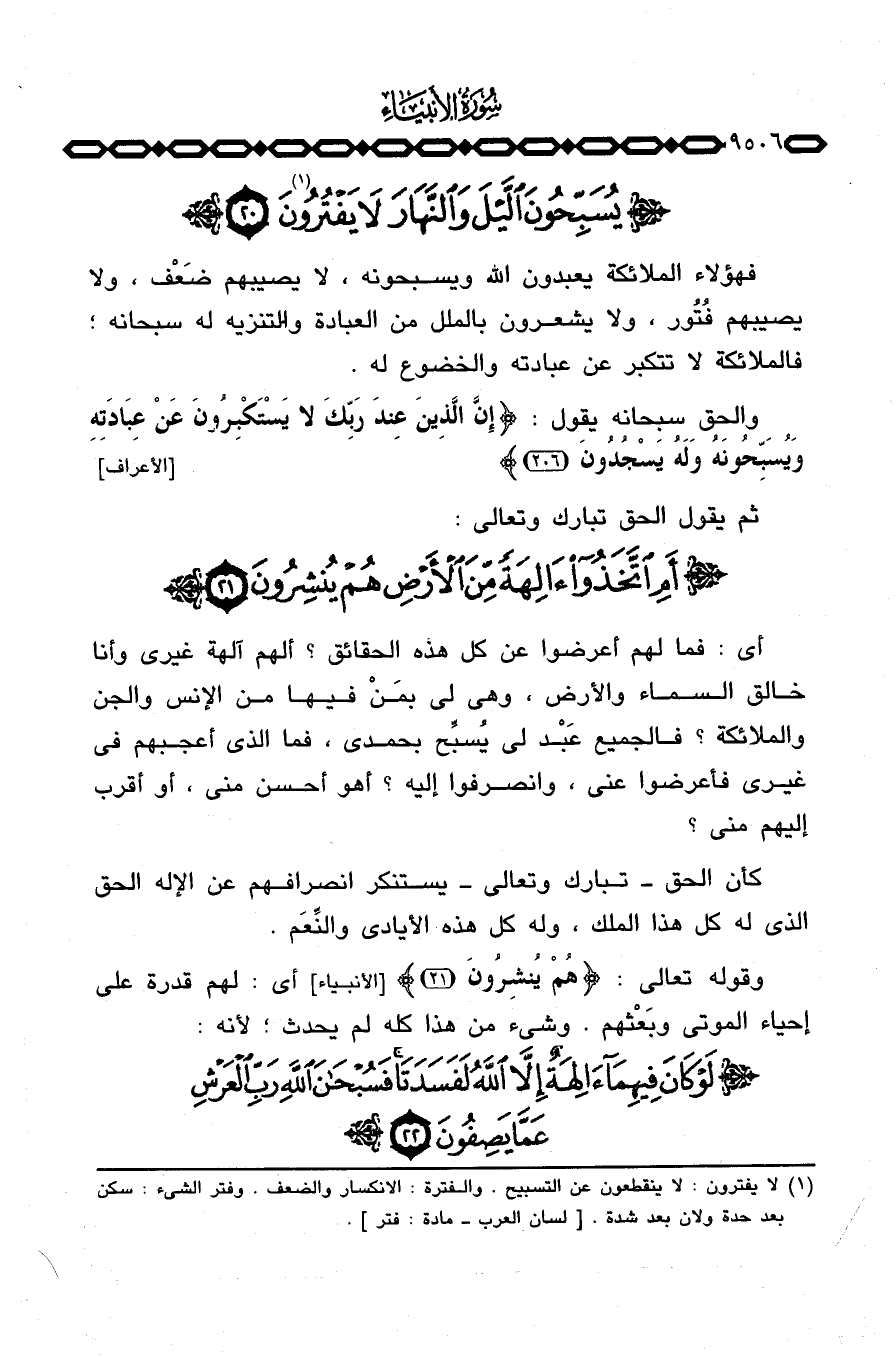 سُورَةُ الأَنبِيَاءِ
٩٥٠٦
﴿يُسَبِّحُونَ ٱلَّيْلَ وَٱلنَّهَارَ لَا يَفْتُرُونَ (١) ٢٠﴾
فهؤلاء الملائكة يعبدون الله ويسبحونه ، لا يصيبهم ضَعْف ، ولا
يصيبهم فُتُور ، ولا يشعرون بالملل من العبادة والتنزيه له سبحانه ؛
فالملائكة لا تتكبر عن عبادته والخضوع له .
والحق سبحانه يقول : ﴿إِنَّ الَّذِينَ عِندَ رَبِّكَ لا يَسْتَكْبِرُونَ عَنْ عِبَادَتِهِ
وَيُسَبِّحُونَهُ وَلَهُ يَسْجُدُونَ (٢٠٦)﴾ [الأعراف]
ثم يقول الحق تبارك وتعالى :
﴿أَمِ ٱتَّخَذُوٓا۟ ءَالِهَةً مِّنَ ٱلْأَرْضِ هُمْ يُنشِرُونَ ٢١﴾
أى : فما لهم أعرضوا عن كل هذه الحقائق ؟ ألهم آلهة غيرى وأنا
خالق السماء والأرض ، وهى لى بمَنْ فيها من الإنس والجن
والملائكة ؟ فالجميع عَبْد لى يُسبِّح بحمدى ، فما الذى أعجبهم فى
غيرى فأعرضوا عنى ، وانصرفوا إليه ؟ أهو أحسن منى ، أو أقرب
إليهم منى ؟
كأن الحق ـ تبارك وتعالى ـ يستنكر انصرافهم عن الإله الحق
الذى له كل هذا الملك ، وله كل هذه الأيادى والنِّعَم .
وقوله تعالى : ﴿هُمْ يُنشِرُونَ (٢١)﴾ [الأنبياء] أى : لهم قدرة على
إحياء الموتى وبَعْثهم . وشىء من هذا كله لم يحدث ؛ لأنه :
﴿لَوْ كَانَ فِيهِمَآ ءَالِهَةٌ إِلَّا ٱللَّهُ لَفَسَدَتَا ۚ فَسُبْحَٰنَ ٱللَّهِ رَبِّ ٱلْعَرْشِ
عَمَّا يَصِفُونَ ٢٢﴾
(١) لا يفترون : لا ينقطعون عن التسبيح . والفترة : الانكسار والضعف . وفتر الشىء : سكن
بعد حدة ولان بعد شدة . [ لسان العرب ـ مادة : فتر ] .